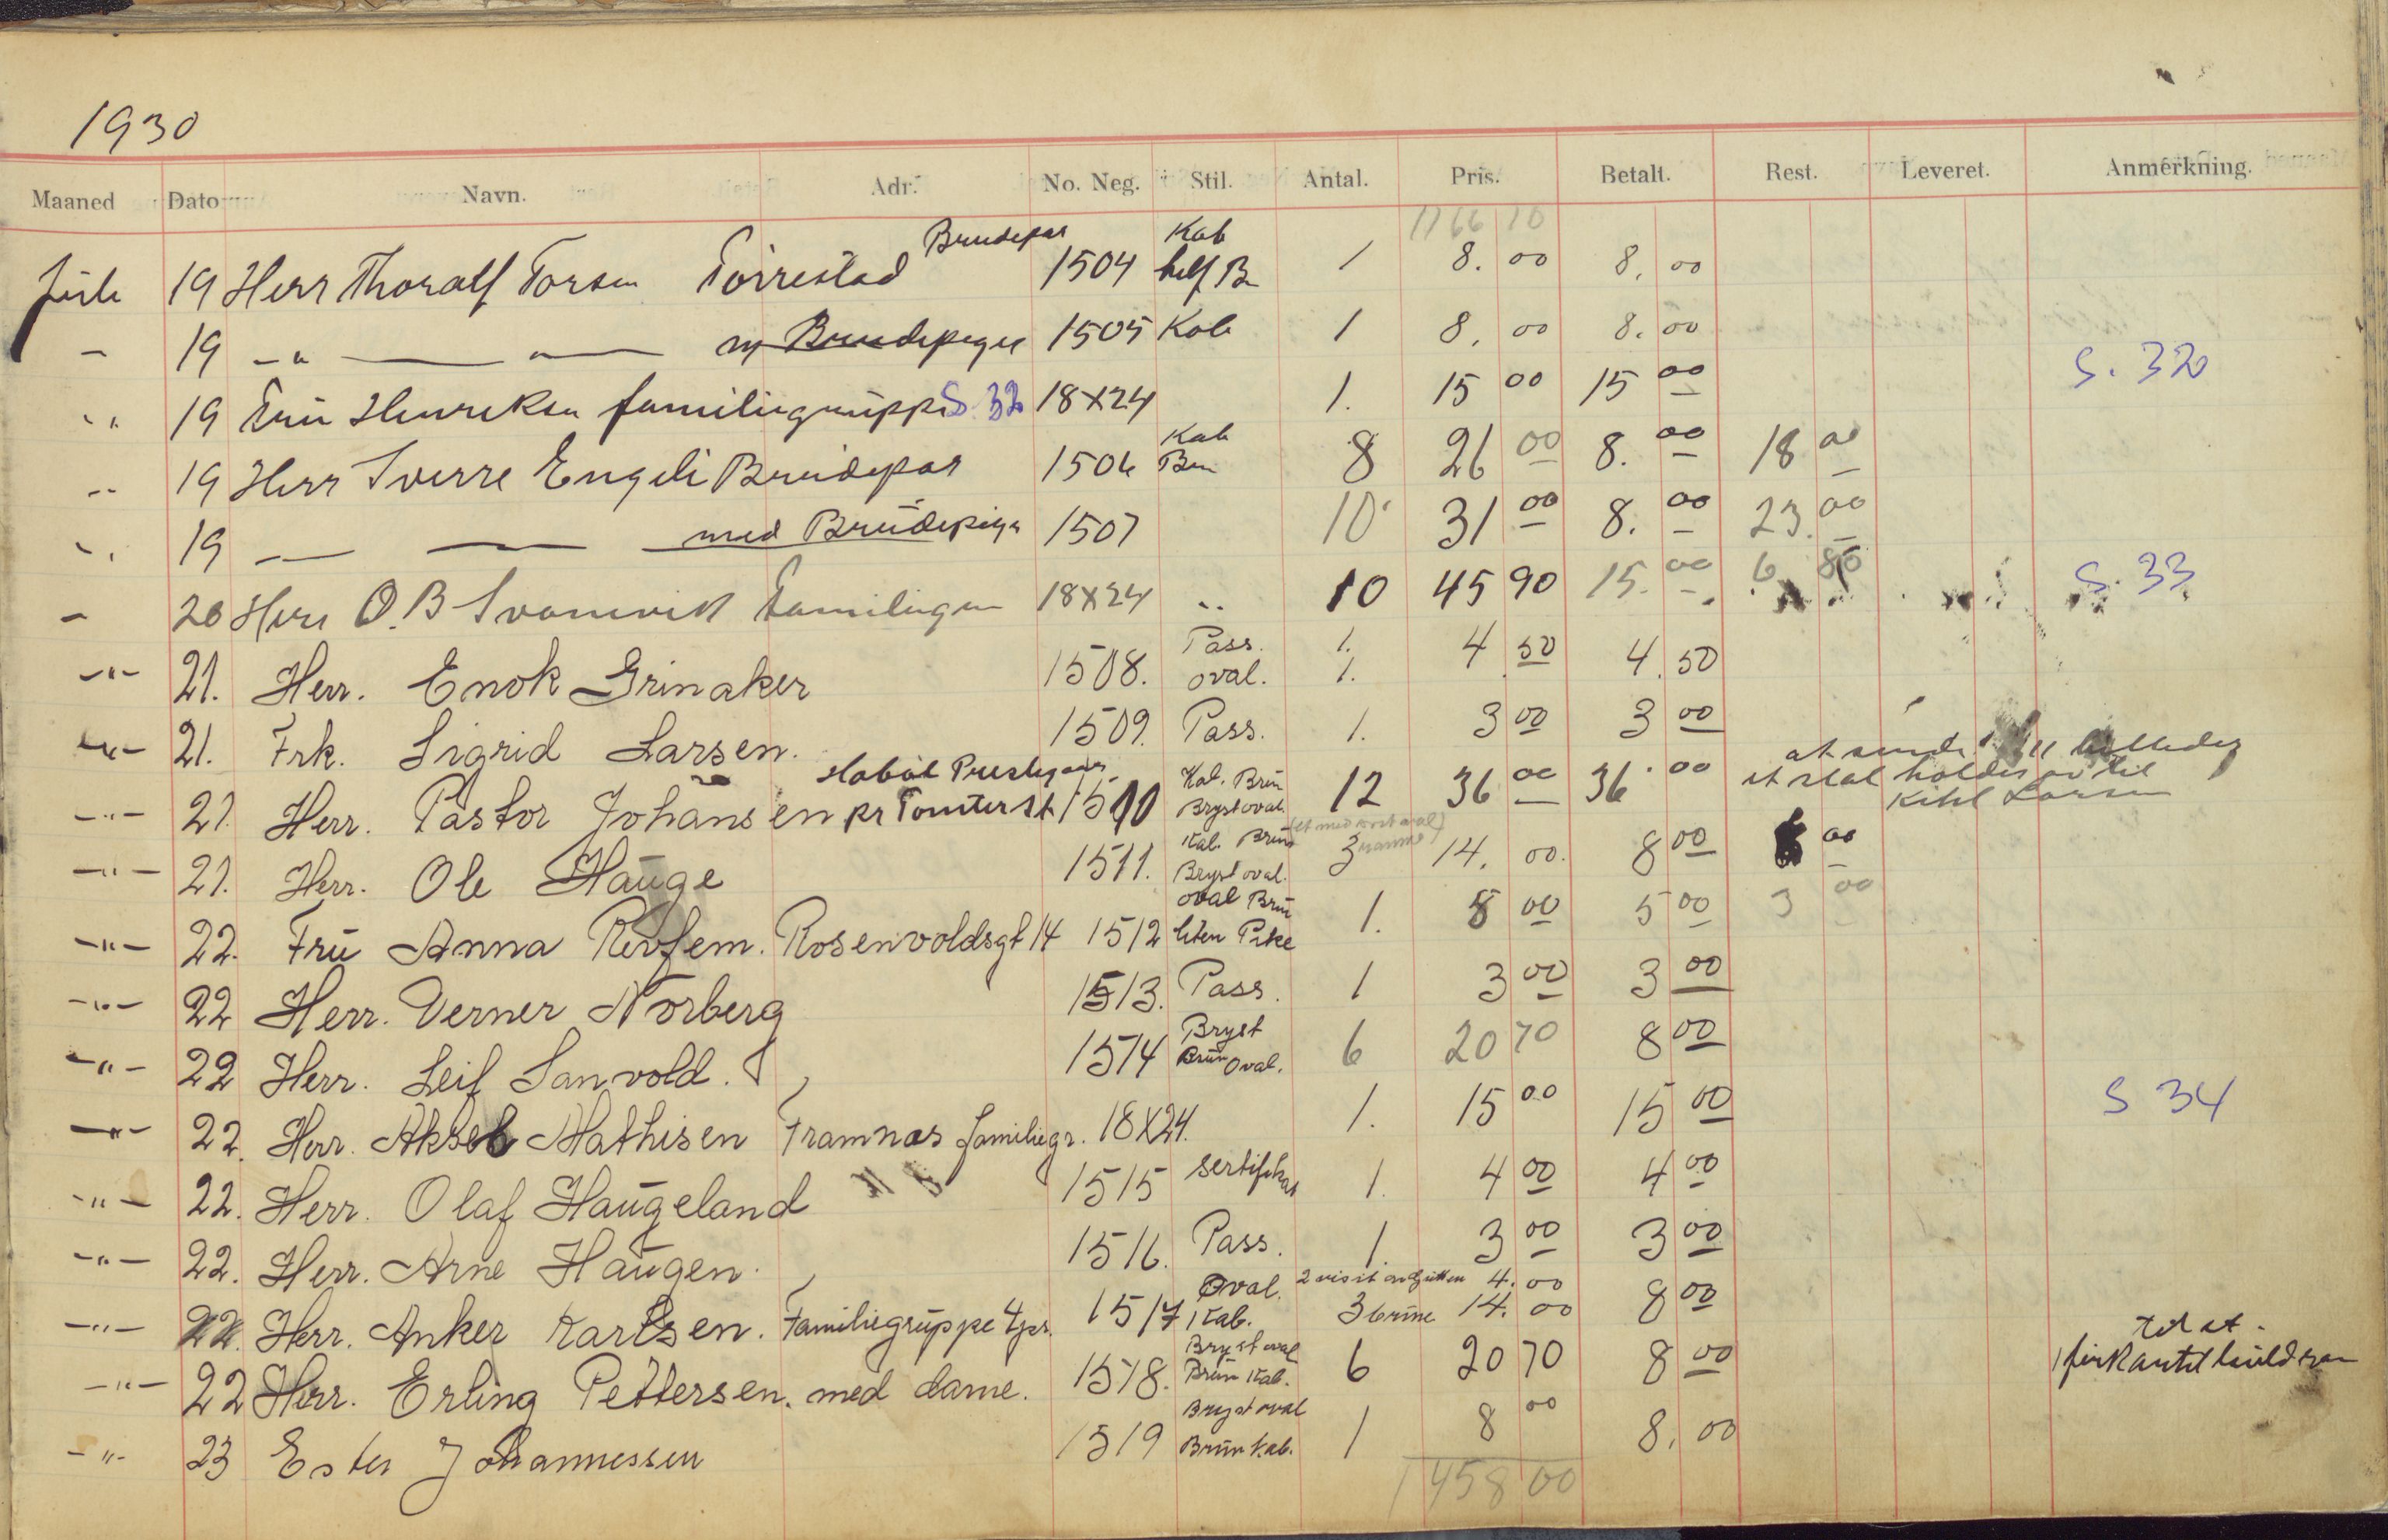 1930
Maaned Dato Navn. Adr. No. Neg. Stil. Antal. Pris. Betalt. Rest. Leveret. Anmerkning.
1166 10
Brudepar Kab
19 Herr Thoralf Torrestad 1504 half Br 1 8. 00 8. 00
- 19 -"- -"- Brudepiger 1505 Kab 1 8. 00 8. 00
19 familiegruppe S. 32 18X24 1. 15 00 15 00 S. 32
Kab
19 Herr Sverre Engeli Brudepar 1506 8 26 00 8. 00 18 00
19 — — med Brudepiger 1507 10 31 00 8. 00 23. 00
- 20 Herr O.B 18X24 " 10 45 90 15. 00 6 80 S. 33
Pass. 1.
-"- 21. Herr. Enok Grinaker 1508. oval. 1. 4 50 4. 50
-"- 21. Frk. Sigrid Larsen. 1509. Pass. 1. 3 00 3 00
Hobøl Prestegaar Kab. Brün
-"- 21. Herr. Pastor Johansen pr Tomter St 1510 Bryst oval. 12 36 00 36 00 holdes av til
Larsen
Kab. Brün
-"- 21. Herr. Ole Haüge 1511. Bryst oval. 3 14. 00. 8 00 00
oval Brün
-"- 22. Frü Anna Revfem. Rosenvoldsgt 14 1512 liten Pike 1. 8 00 5 00 3 00
-"- 22 Herr. Verner Norberg 1513. Pass. 1 3 00 3 00
Bryst
-"- 22 Herr. Leif Sanvold. 1514 Brün Oval. 6 20 70 8 00
-"- 22. Herr. Aksel Mathisen Framnæs familiegr. 18X24. 1. 15 00 15 00 S 34
-"- 22. Herr. Olaf Haügeland 1515 sertifikat 1. 4 00 4 00
-"- 22. Herr. Arne Haügen. 1516. Pass. 1. 3 00 3 00
Oval. 2 visit 4. 00
-"- 22. Herr. Anker Karlsen. Familiegrüppe 4prs. 1517 Kab. 3 brüne 14. 00 8 00
Bryst oval
-"- 22 Herr. Erling Pettersen. med dame. 1518. Brün Kab. 6 20 70 8 00
Bryst oval
-"- 23 Ester Johannessen 1519 Brün Kab. 1 8 00 8. 00
1458 00